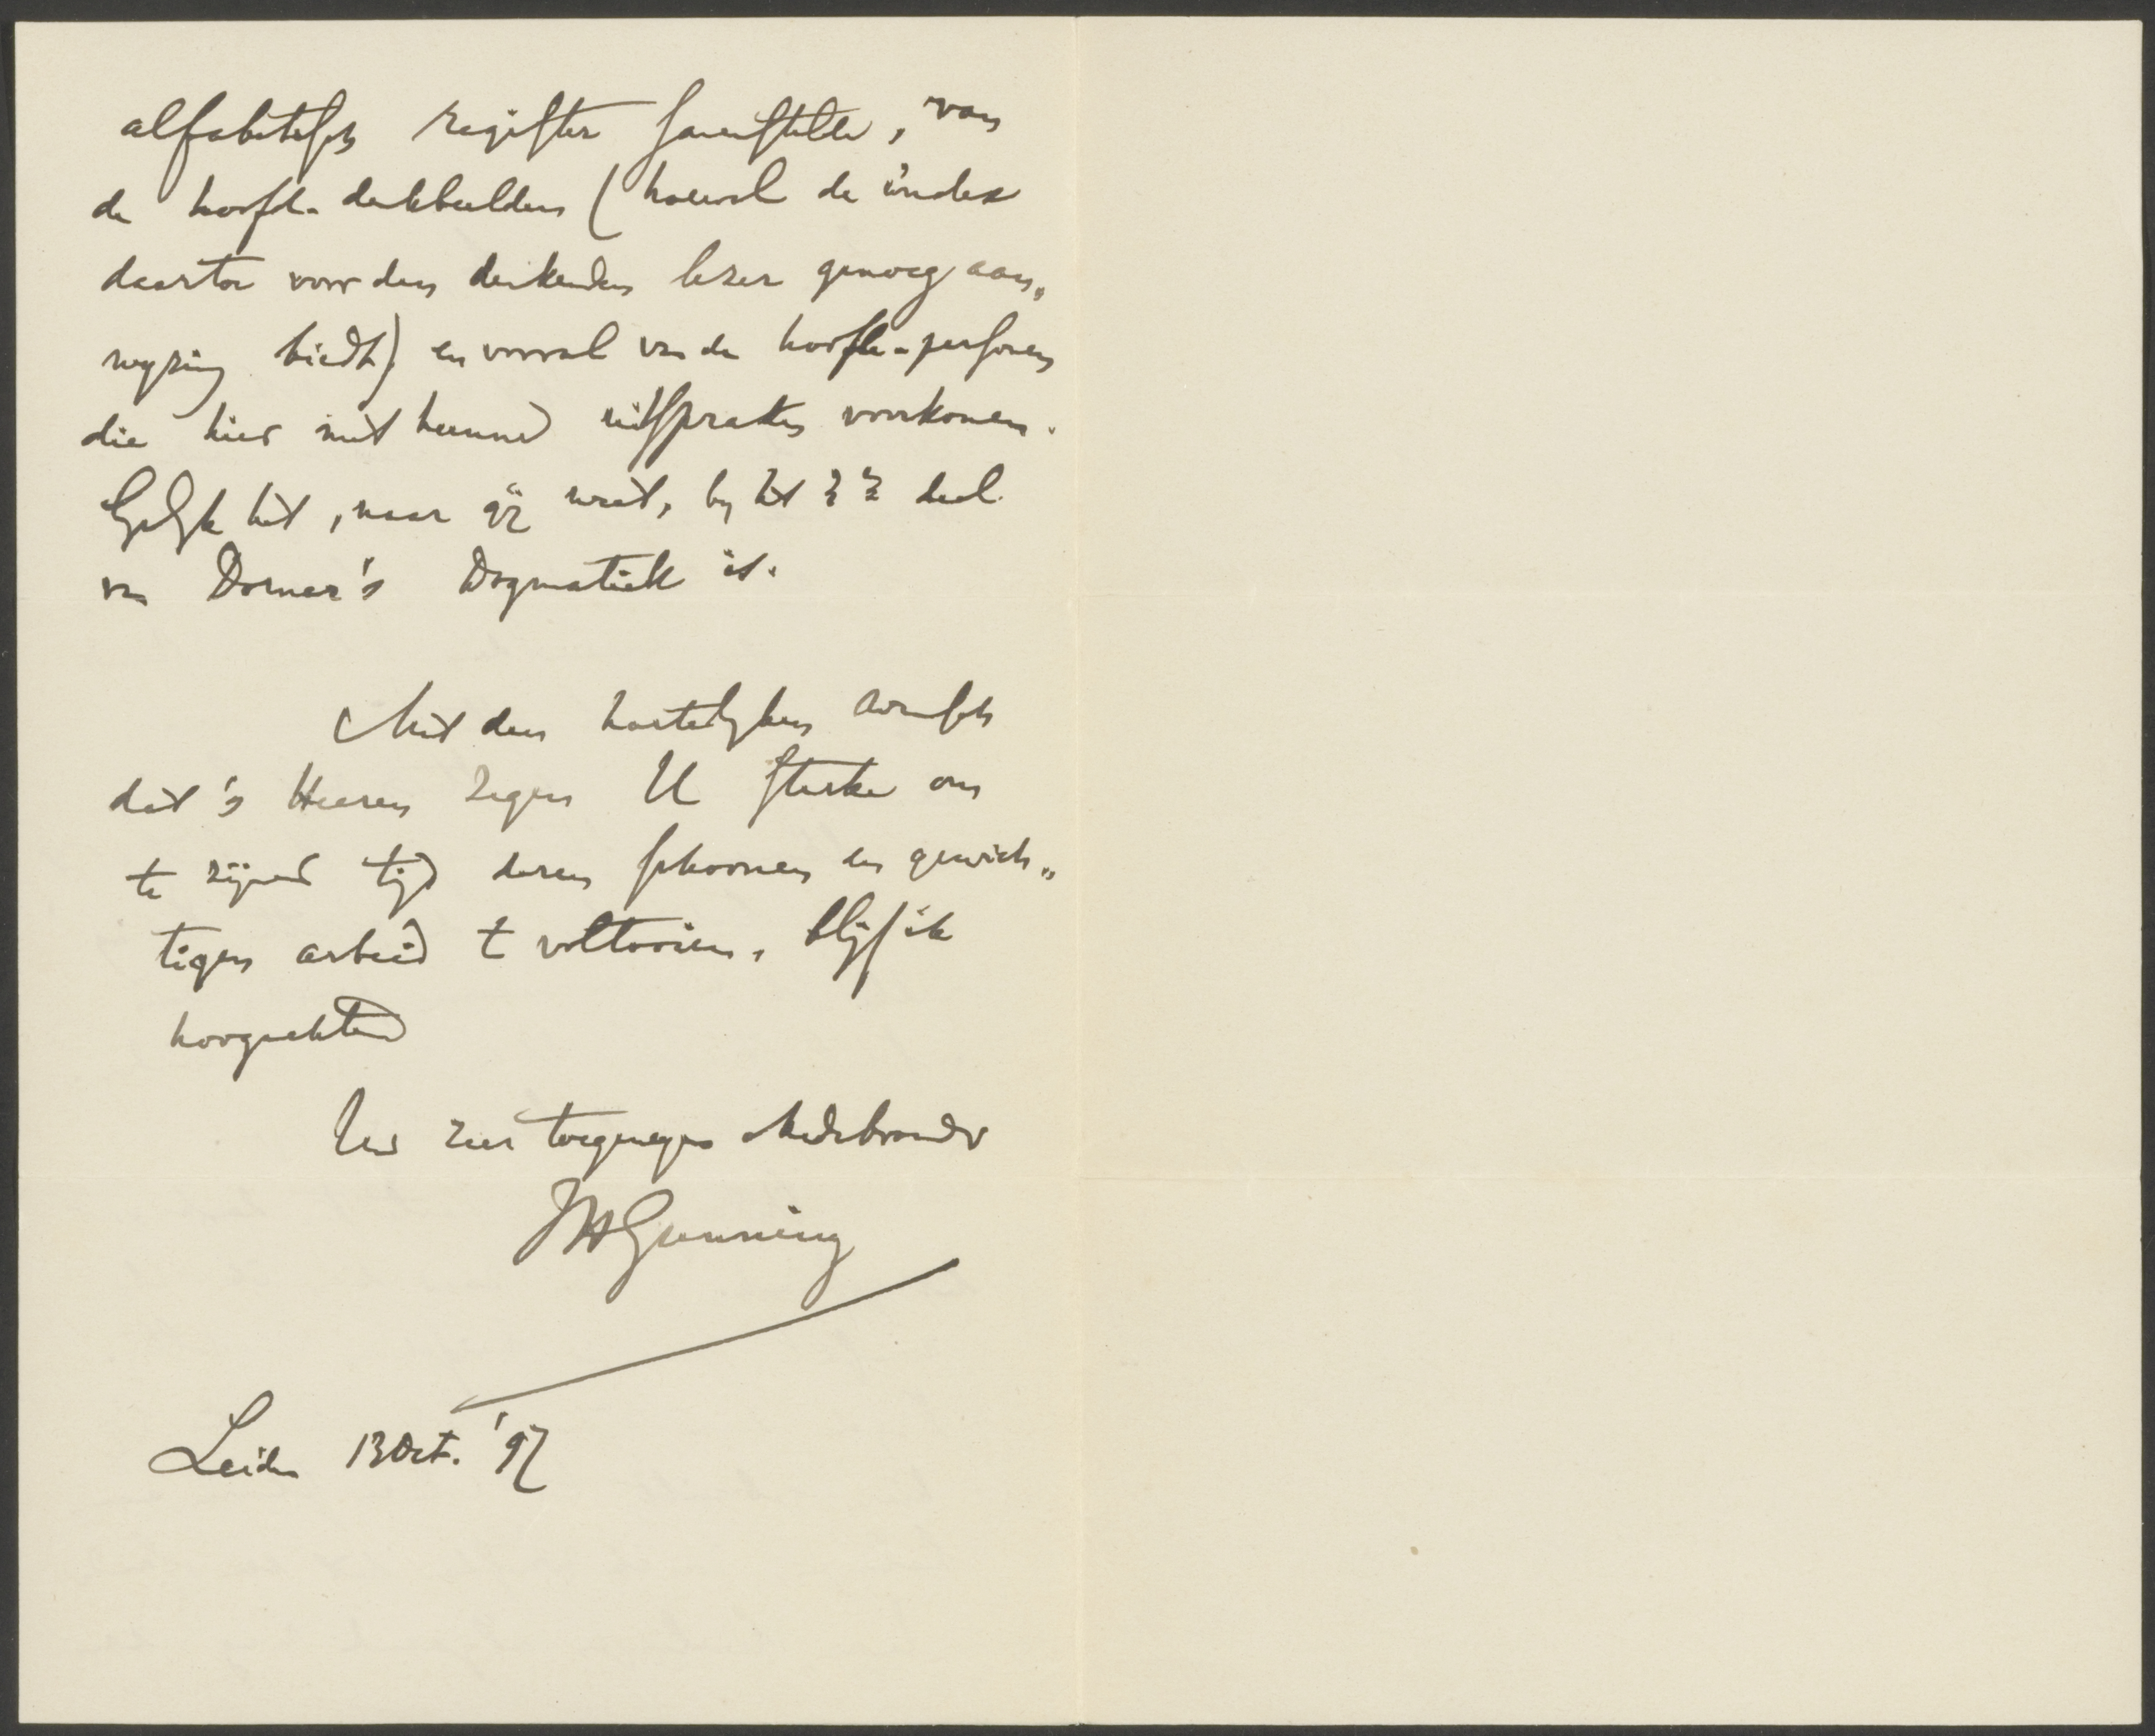 alfabetisch register samenstelle, van
de hoofd-denkbeelden (hoewel de index
daartoe voor den denkenden lezer genoeg aan„
wyzing biedt) en vooral van de hoofd-personen
die hier met hunne uitspraken voorkomen.
Gelyk het, naar gij weet, by het deel
van Dorner's Dogmatiek is.
Met den hartelyken wensch
dat 's Heeren zegen U sterke om
te zijner tijd dezen schoonen en gewich„
tigen arbeid te voltooien, blijf ik
hoogachtend
Uw zeer toegenegen Medebroeder
JH Gunning
Leiden 13 Oct. '97